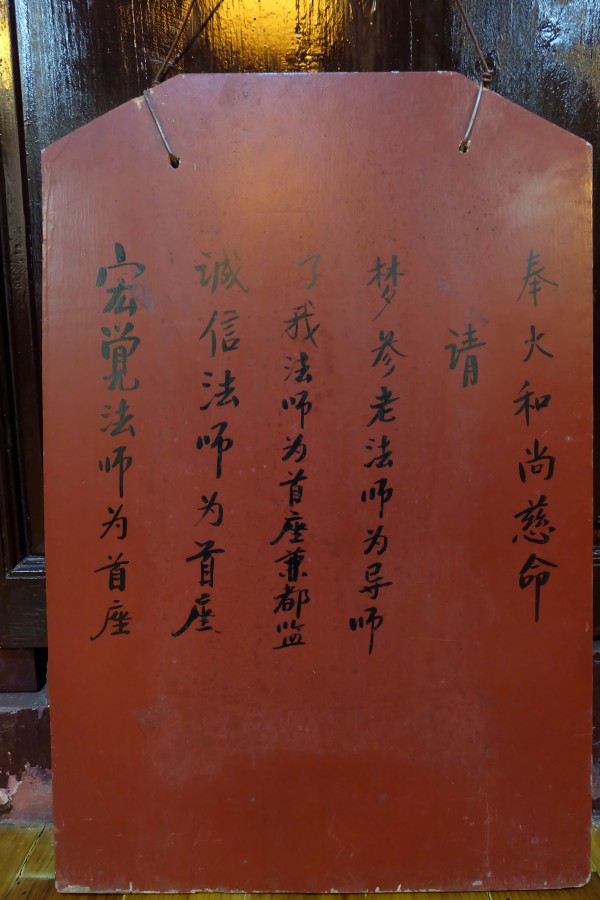 奉大和尚慈命
请
梦参老法师为导师
了我法师为首座兼都监
诚信法师为首座
宏觉法师为首座